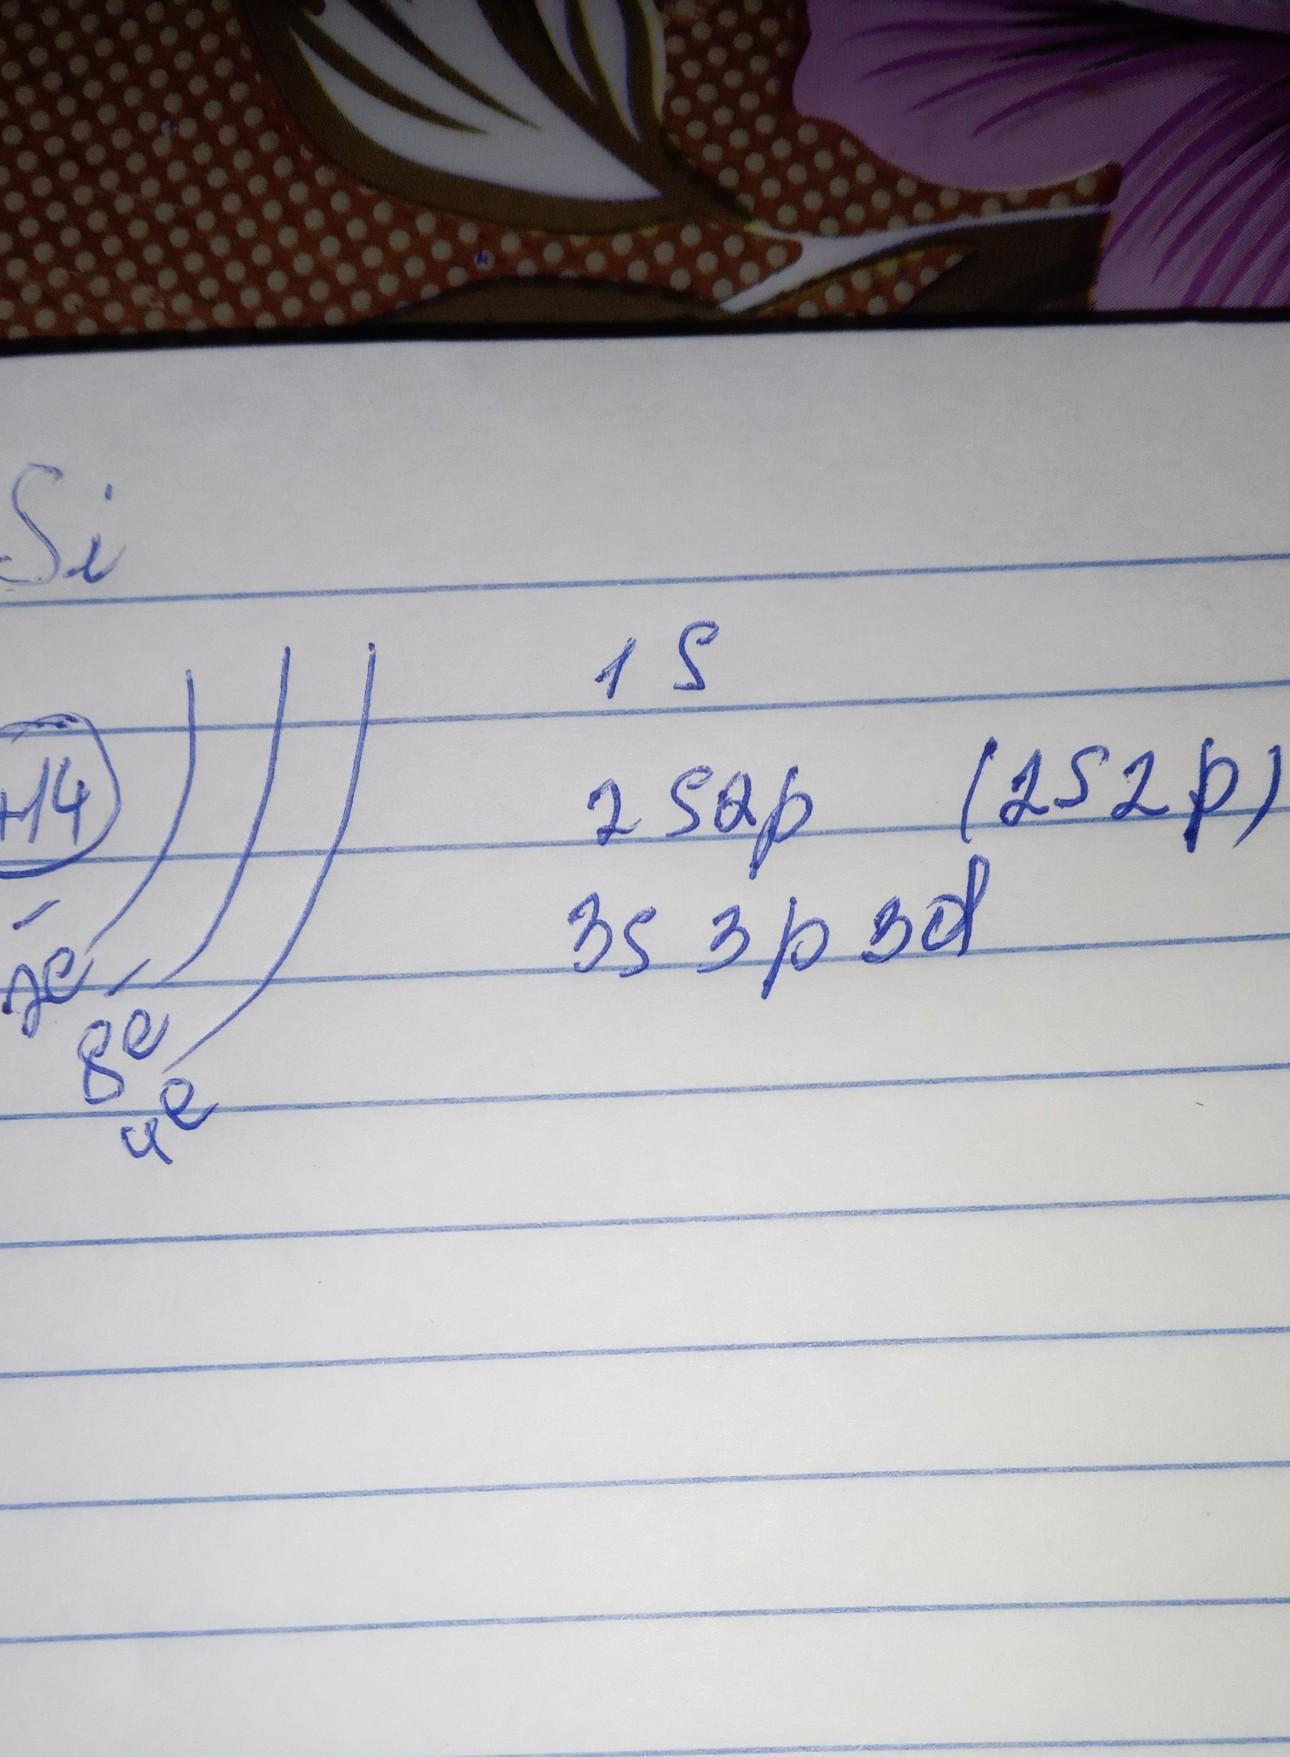 Si
+14
2e
8e
4e
1s
2s2p (2s2p)
3s 3p 3d